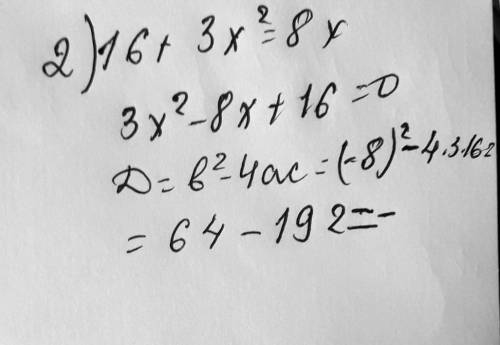 2) 16 + 3x² = 8x
3x² - 8x + 16 = 0
D = b² - 4ac = (-8)² - 4·3·16 =
= 64 - 192 = -